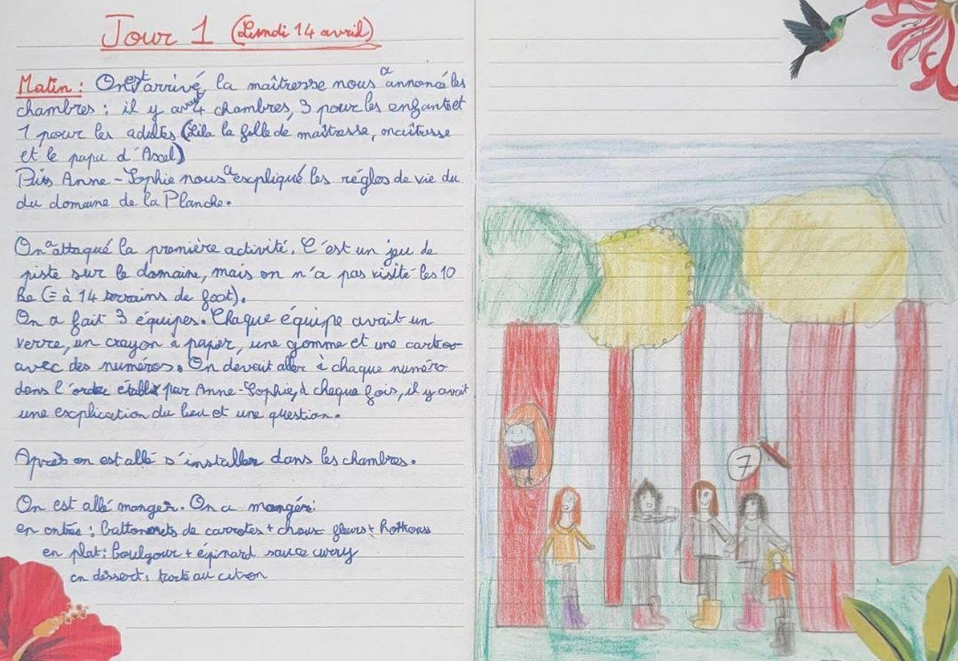 Jour 1 (Lundi 14 avril)
Matin : On est arrivé, la maîtresse nous a annoncé les
chambres : il y avait 4 chambres, 3 pour les enfants et
1 pour les adultes (Lila la fille de maîtresse, maîtresse
et le papa d'Axel)
Puis Anne-Sophie nous a expliqué les régles de vie du
du domaine de la Planche.
On a attaqué la première activité. C'est un jeu de
piste sur le domaine, mais on n'a pas visité les 10
ha (= à 14 terrains de foot).
On a fait 3 équipes. Chaque équipe avait un
verre, un crayon à papier, une gomme et une carte
avec des numéros. On devait aller à chaque numéro
dans l'ordre établi par Anne-Sophie, à chaque fois, il y avait
une explication du lieu et une question.
Après on est allé s'installer dans les chambres.
On est allé manger. On a mangé :
en entrée : battonets de carottes + choux fleurs +
en plat : boulgour + épinard sauce curry
en dessert : tarte au citron
7